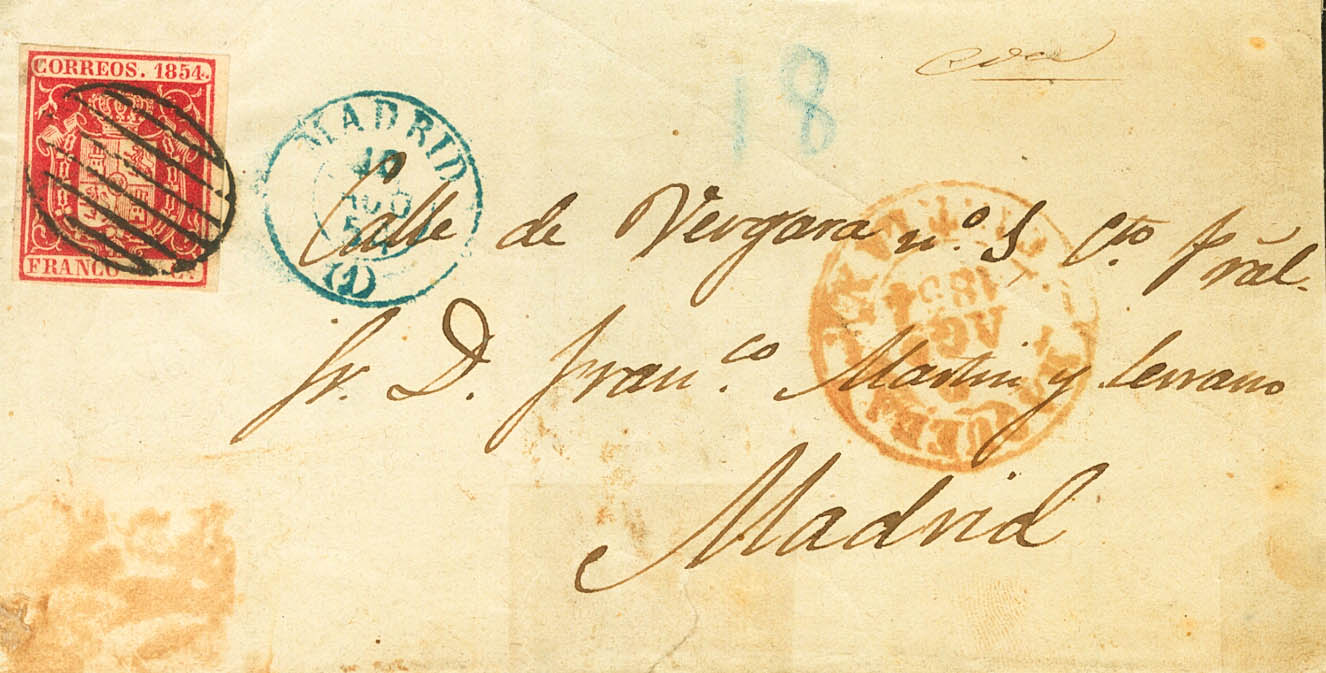 CORREOS. 1854.
FRANCO
18
MADRID
AGO
(1)
Calle de Vergara nº 5 Cto pral.
Sr. D. Franco. Martin y Serrano
Madrid
1854
AG